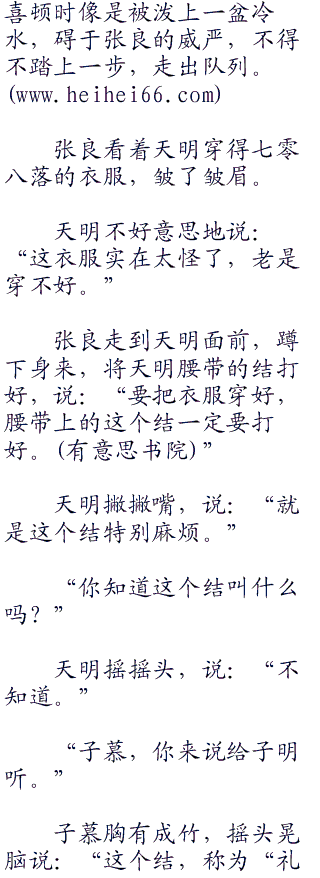 喜顿时像是被泼上一盆冷
水，碍于张良的威严，不得
不踏上一步，走出队列。
(www.heihei66.com)
张良看着天明穿得七零
八落的衣服，皱了皱眉。
天明不好意思地说：
“这衣服实在太怪了，老是
穿不好。”
张良走到天明面前，蹲
下身来，将天明腰带的结打
好，说：“要把衣服穿好，
腰带上的这个结一定要打
好。(有意思书院)”
天明撇撇嘴，说：“就
是这个结特别麻烦。”
“你知道这个结叫什么
吗？”
天明摇摇头，说：“不
知道。”
“子慕，你来说给子明
听。”
子慕胸有成竹，摇头晃
脑说：“这个结，称为“礼